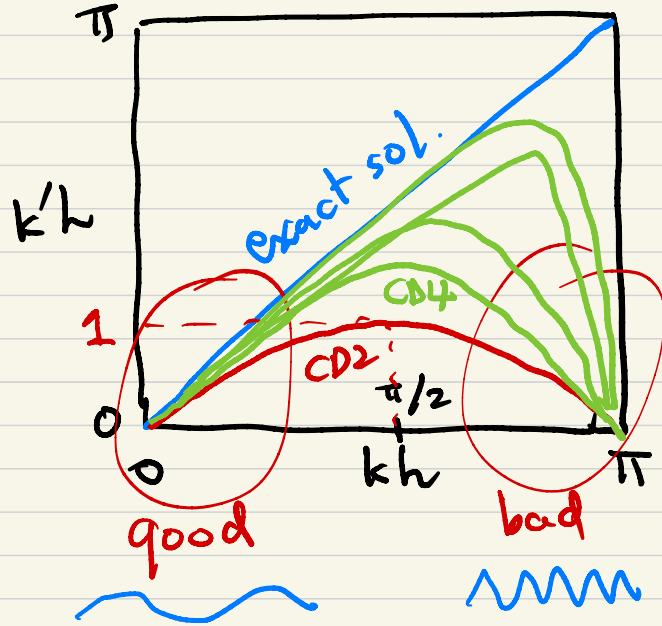 π
k'h
exact sol.
CD4
1
CD2
π/2
0
0
kh
π
good
bad